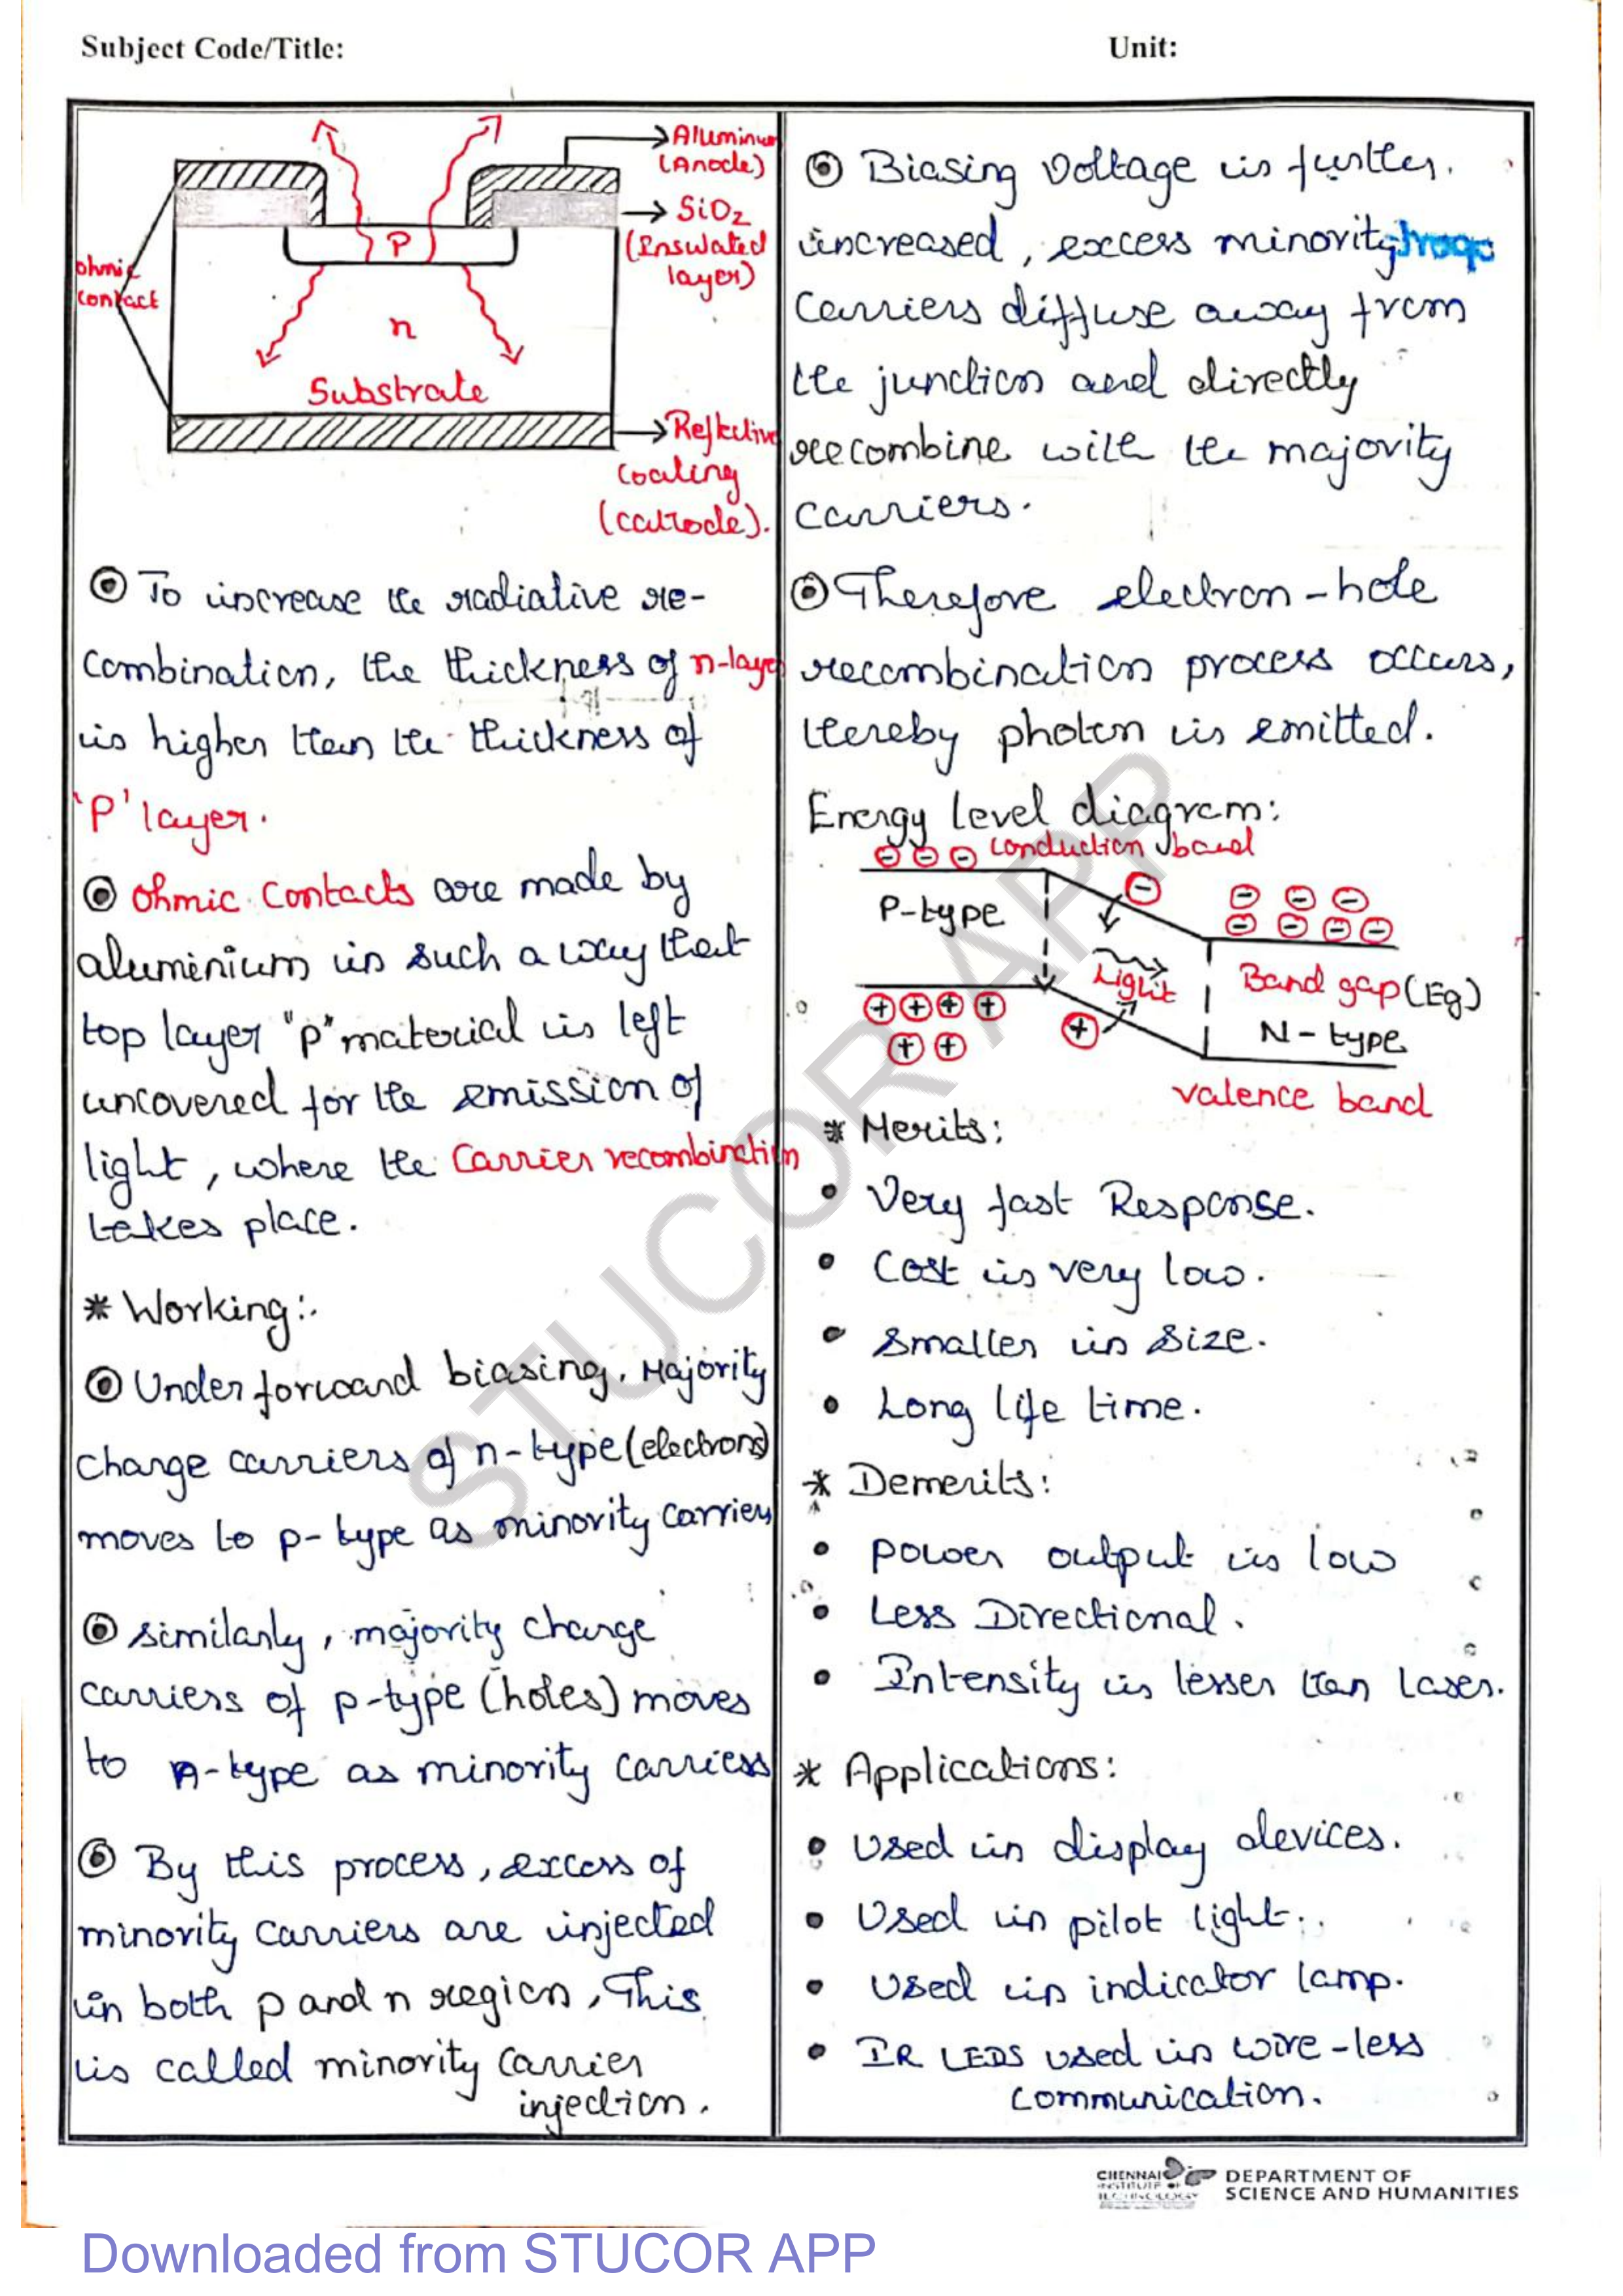 Subject Code/Title:
Unit:
Aluminium
(Anode)
SiO2
(Insulated
layer)
ohmic
contact
P
n
Substrate
Reflective
Coating
(cathode).
To increase the radiative re-
combination, the thickness of n-layer
is higher than the thickness of
'P' layer.
Ohmic Contacts are made by
aluminium in such a way that
top layer "p" material is left
uncovered for the emission of
light, where the Carrier recombination
takes place.
* Working:
Under forward biasing, Majority
change carriers of n-type (electrons)
moves to p-type as minority carriers
similarly, majority change
carriers of p-type (holes) moves
to n-type as minority carriers
By this process, excess of
minority carriers are injected
in both p and n region, This
is called minority carrier
injection.
Biasing Voltage is further
increased, excess minority
Carriers diffuse away from
the junction and directly
recombine with the majority
carriers.
Therefore electron-hole
recombination process occurs,
thereby photon is emitted.
Energy level diagram:
conduction band
P-type
Light
Band gap (Eg)
N-type
valence band
* Merits:
• Very fast Response.
• Cost is very low.
• Smaller in size.
• Long life time.
* Demerits:
• power output is low
• Less Directional.
• Intensity is lesser than laser.
* Applications:
• Used in display devices.
• Used in pilot light.
• Used in indicator lamp.
• IR LEDS used in wire-less
communication.
STUCOR APP
CHENNAI
INSTITUTE OF
TECHNOLOGY
DEPARTMENT OF
SCIENCE AND HUMANITIES
Downloaded from STUCOR APP